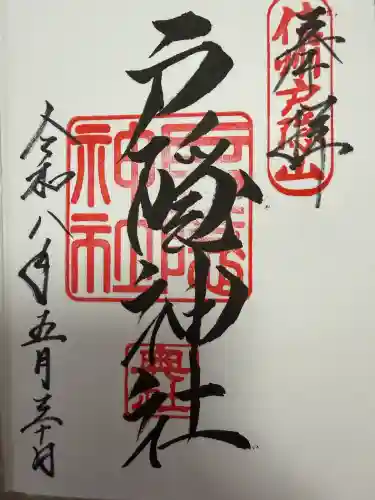 奉拝
信州戸隠山
戸隠神社
戸隠神社
令和八年五月三十日